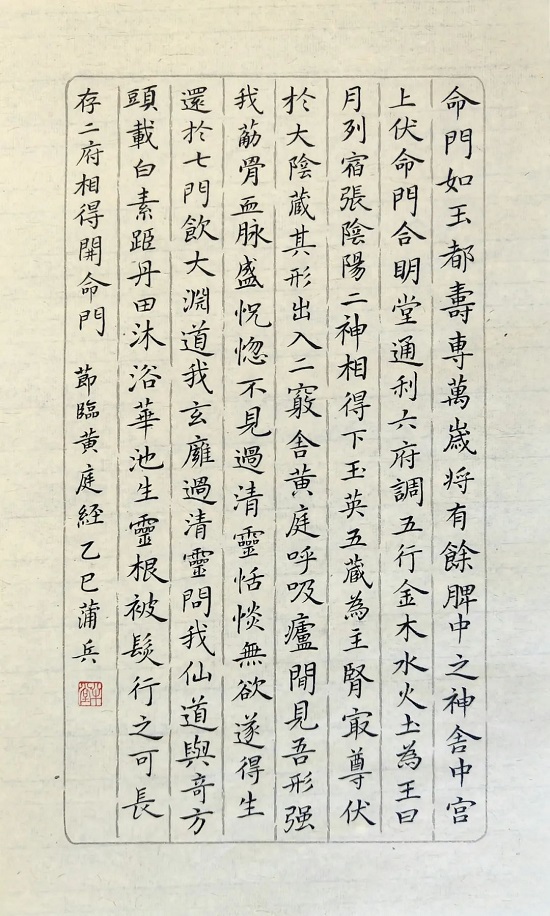 命門如玉都壽專萬歲将有餘脾中之神舍中宮
上伏命門合明堂通利六府調五行金木水火土為王日
月列宿張陰陽二神相得下玉英五藏為主腎寂尊伏
於大陰藏其形出入二竅舍黄庭呼吸廬間見吾形强
我筋骨血脉盛怳惚不見過清靈恬惔無欲遂得生
還於七門飲大淵道我玄廱過清靈問我仙道與奇方
頭載白素距丹田沐浴華池生靈根被髮行之可長
存二府相得開命門 節臨黄庭經乙巳蒲兵